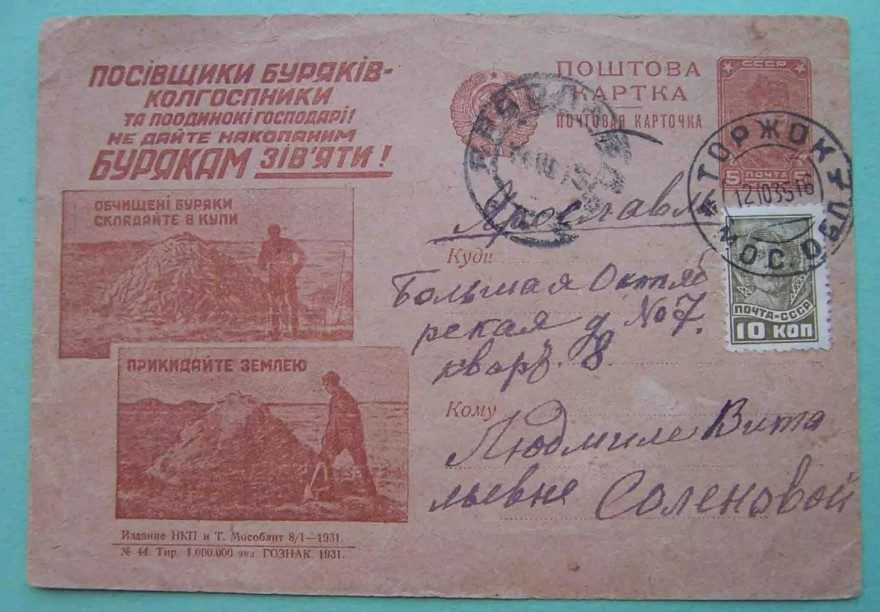 ПОСІВЩИКИ БУРЯКІВ-
КОЛГОСПНИКИ
ТА ПООДИНОКІ ГОСПОДАРІ!
НЕ ДАЙТЕ НАКОПАНИМ
БУРЯКАМ ЗІВ'ЯТИ!
ОБЧИЩЕНІ БУРЯКИ
СКЛАДАЙТЕ В КУПИ
ПРИКИДАЙТЕ ЗЕМЛЕЮ
Издание НКП и Т. Мособлит 8/1—1931.
№ 44. Тир. 1 000.000 экз. ГОЗНАК. 1931.
ПОШТОВА
КАРТКА
ПОЧТОВАЯ КАРТОЧКА
СССР
5 ПОЧТА 5
ТОРЖОК
12 10 35 16
МОС. ОБЛ
ПОЧТА-СССР
10 КОП
Ярославль
Куди
Большая Октяб
рская д №7.
кварт. 8
Кому
Людмиле Вита
льевне Соленовой